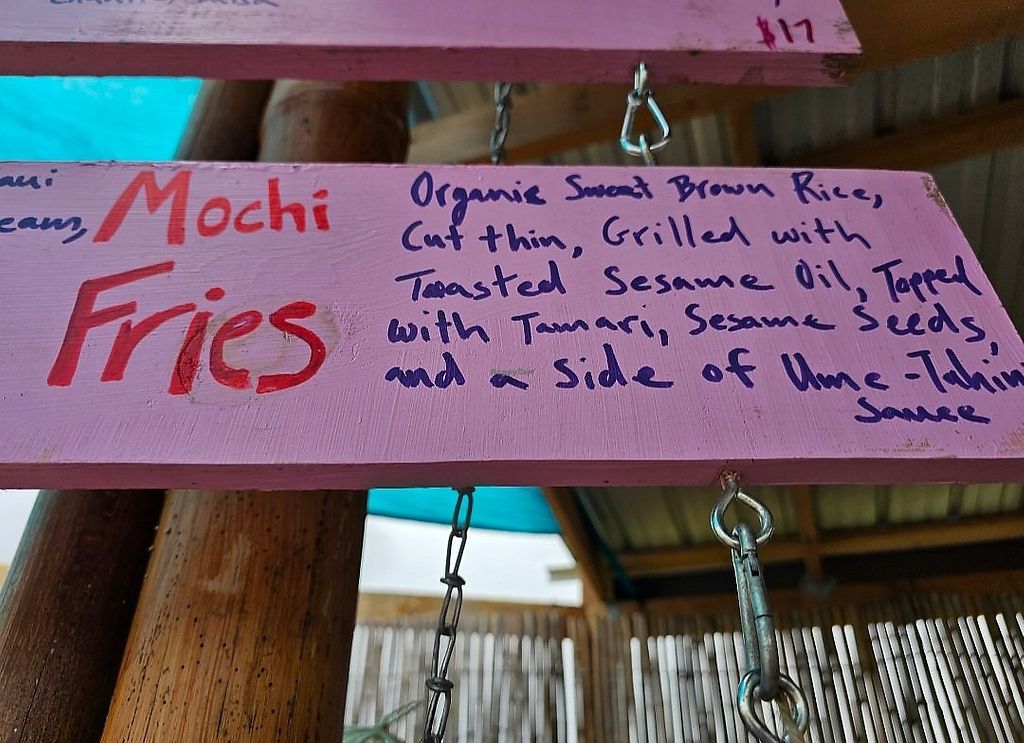 $17
Mochi
Fries
Organic Sweet Brown Rice,
Cut thin, Grilled with
Toasted Sesame Oil, Topped
with Tamari, Sesame Seeds,
and a side of Ume-Tahin
Sauce